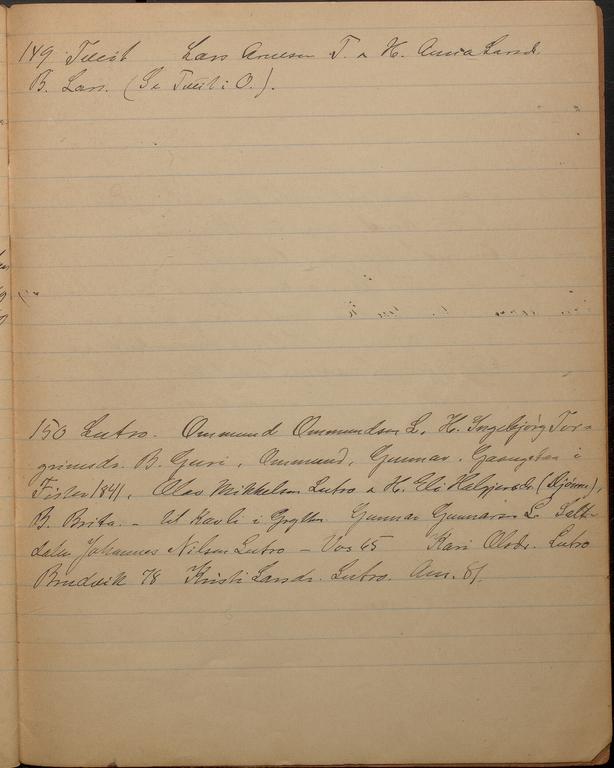 149 Tveit Lars Arnesen T. a H. Anna Larsd.
B. Lars. (Se Tveit i O.).
150 Lutro. Ommund Ommundsen L. H. Ingebjörg Tor-
grimsdr. B. Guri, Ommund, Gunnar. i
Fister 1841, Olav Mikkelsen Lutro a H. Eli (Djönne),
B. Brita. - Ut Gunnar Gunnarsen L.
Johannes Nilsen Lutro - Vos 45 Kari Olsdr. Lutro
Brudvik 78 Kristi Larsdr. Lutro. Am. 81.